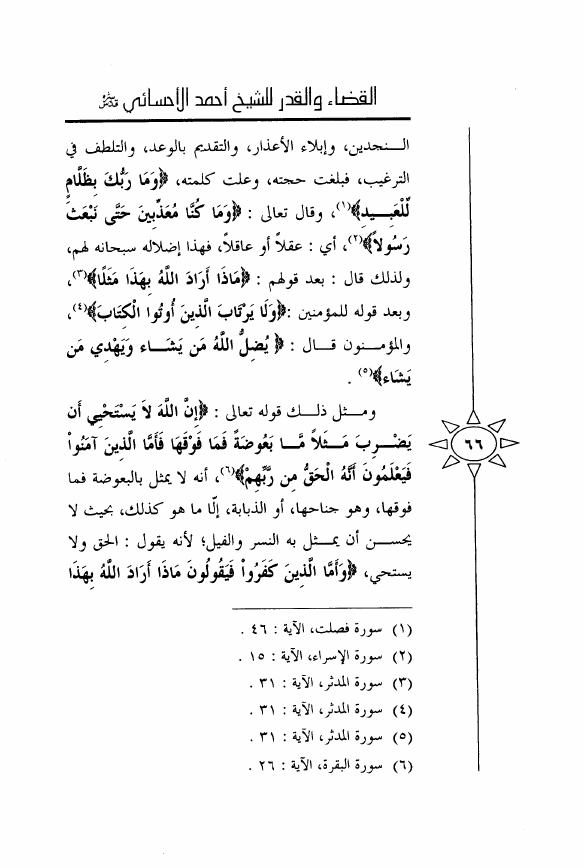 القضاء والقدر للشيخ أحمد الأحسائي
النجدين، وإبلاء الأعذار، والتقديم بالوعد، والتلطف في
الترغيب، فبلغت حجته، وعلت كلمته، ﴿وَمَا رَبُّكَ بِظَلَّامٍ
لِّلْعَبِيدِ﴾(١)، وقال تعالى : ﴿وَمَا كُنَّا مُعَذِّبِينَ حَتَّى نَبْعَثَ
رَسُولاً﴾(٢)، أي : عقلاً أو عاقلاً، فهذا إضلاله سبحانه لهم،
ولذلك قال : بعد قولهم : ﴿مَاذَا أَرَادَ اللَّهُ بِهَذَا مَثَلًا﴾(٣)،
وبعد قوله للمؤمنين :﴿وَلَا يَرْتَابَ الَّذِينَ أُوتُوا الْكِتَابَ﴾(٤)،
والمؤمنون قال : ﴿ يُضِلُّ اللَّهُ مَن يَشَاء وَيَهْدِي مَن
يَشَاء﴾(٥) .
ومثل ذلك قوله تعالى : ﴿إِنَّ اللَّهَ لاَ يَسْتَحْيِي أَن
يَضْرِبَ مَثَلاً مَّا بَعُوضَةً فَمَا فَوْقَهَا فَأَمَّا الَّذِينَ آمَنُواْ
فَيَعْلَمُونَ أَنَّهُ الْحَقُّ مِن رَّبِّهِمْ﴾(٦)، أنه لا يمثل بالبعوضة فما
فوقها، وهو جناحها، أو الذبابة، إلّا ما هو كذلك، بحيث لا
يحسن أن يمثل به النسر والفيل؛ لأنه يقول : الحق ولا
يستحي، ﴿وَأَمَّا الَّذِينَ كَفَرُواْ فَيَقُولُونَ مَاذَا أَرَادَ اللَّهُ بِهَذَا
٦٦
(١) سورة فصلت، الآية : ٤٦ .
(٢) سورة الإسراء، الآية : ١٥ .
(٣) سورة المدثر، الآية : ٣١ .
(٤) سورة المدثر، الآية : ٣١ .
(٥) سورة المدثر، الآية : ٣١ .
(٦) سورة البقرة، الآية : ٢٦ .